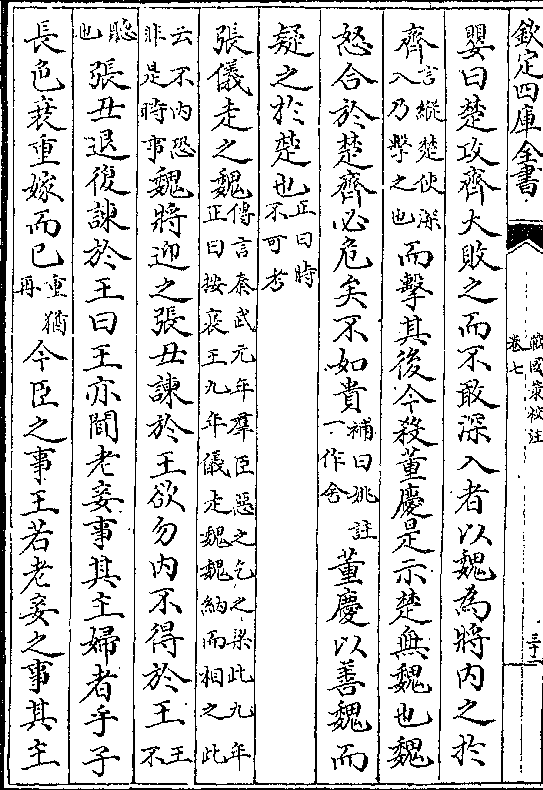 欽定四庫全書
戰國策校注
卷七
三十二
嬰曰楚攻齊大敗之而不敢深入者以魏為將内之於
齊言縱楚使深入乃擊之也而擊其後今殺董慶是示楚無魏也魏
怒合於楚齊必危矣不如貴補曰姚註一作舍董慶以善魏而
疑之於楚也正曰時不可考
張儀走之魏傳言秦武元年羣臣惡之乞之梁此九年正曰按襄王九年儀走魏魏納而相之此
云不内恐非是時事魏將迎之張丑諫於王欲勿内不得於王王不
聽也張丑退復諫於王曰王亦聞老妾事其主婦者乎子
長色衰重嫁而已重猶再今臣之事王若老妾之事其主